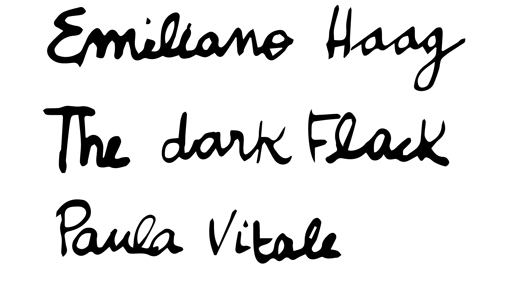 Emiliano Haag
The dark Flack
Paula Vitale